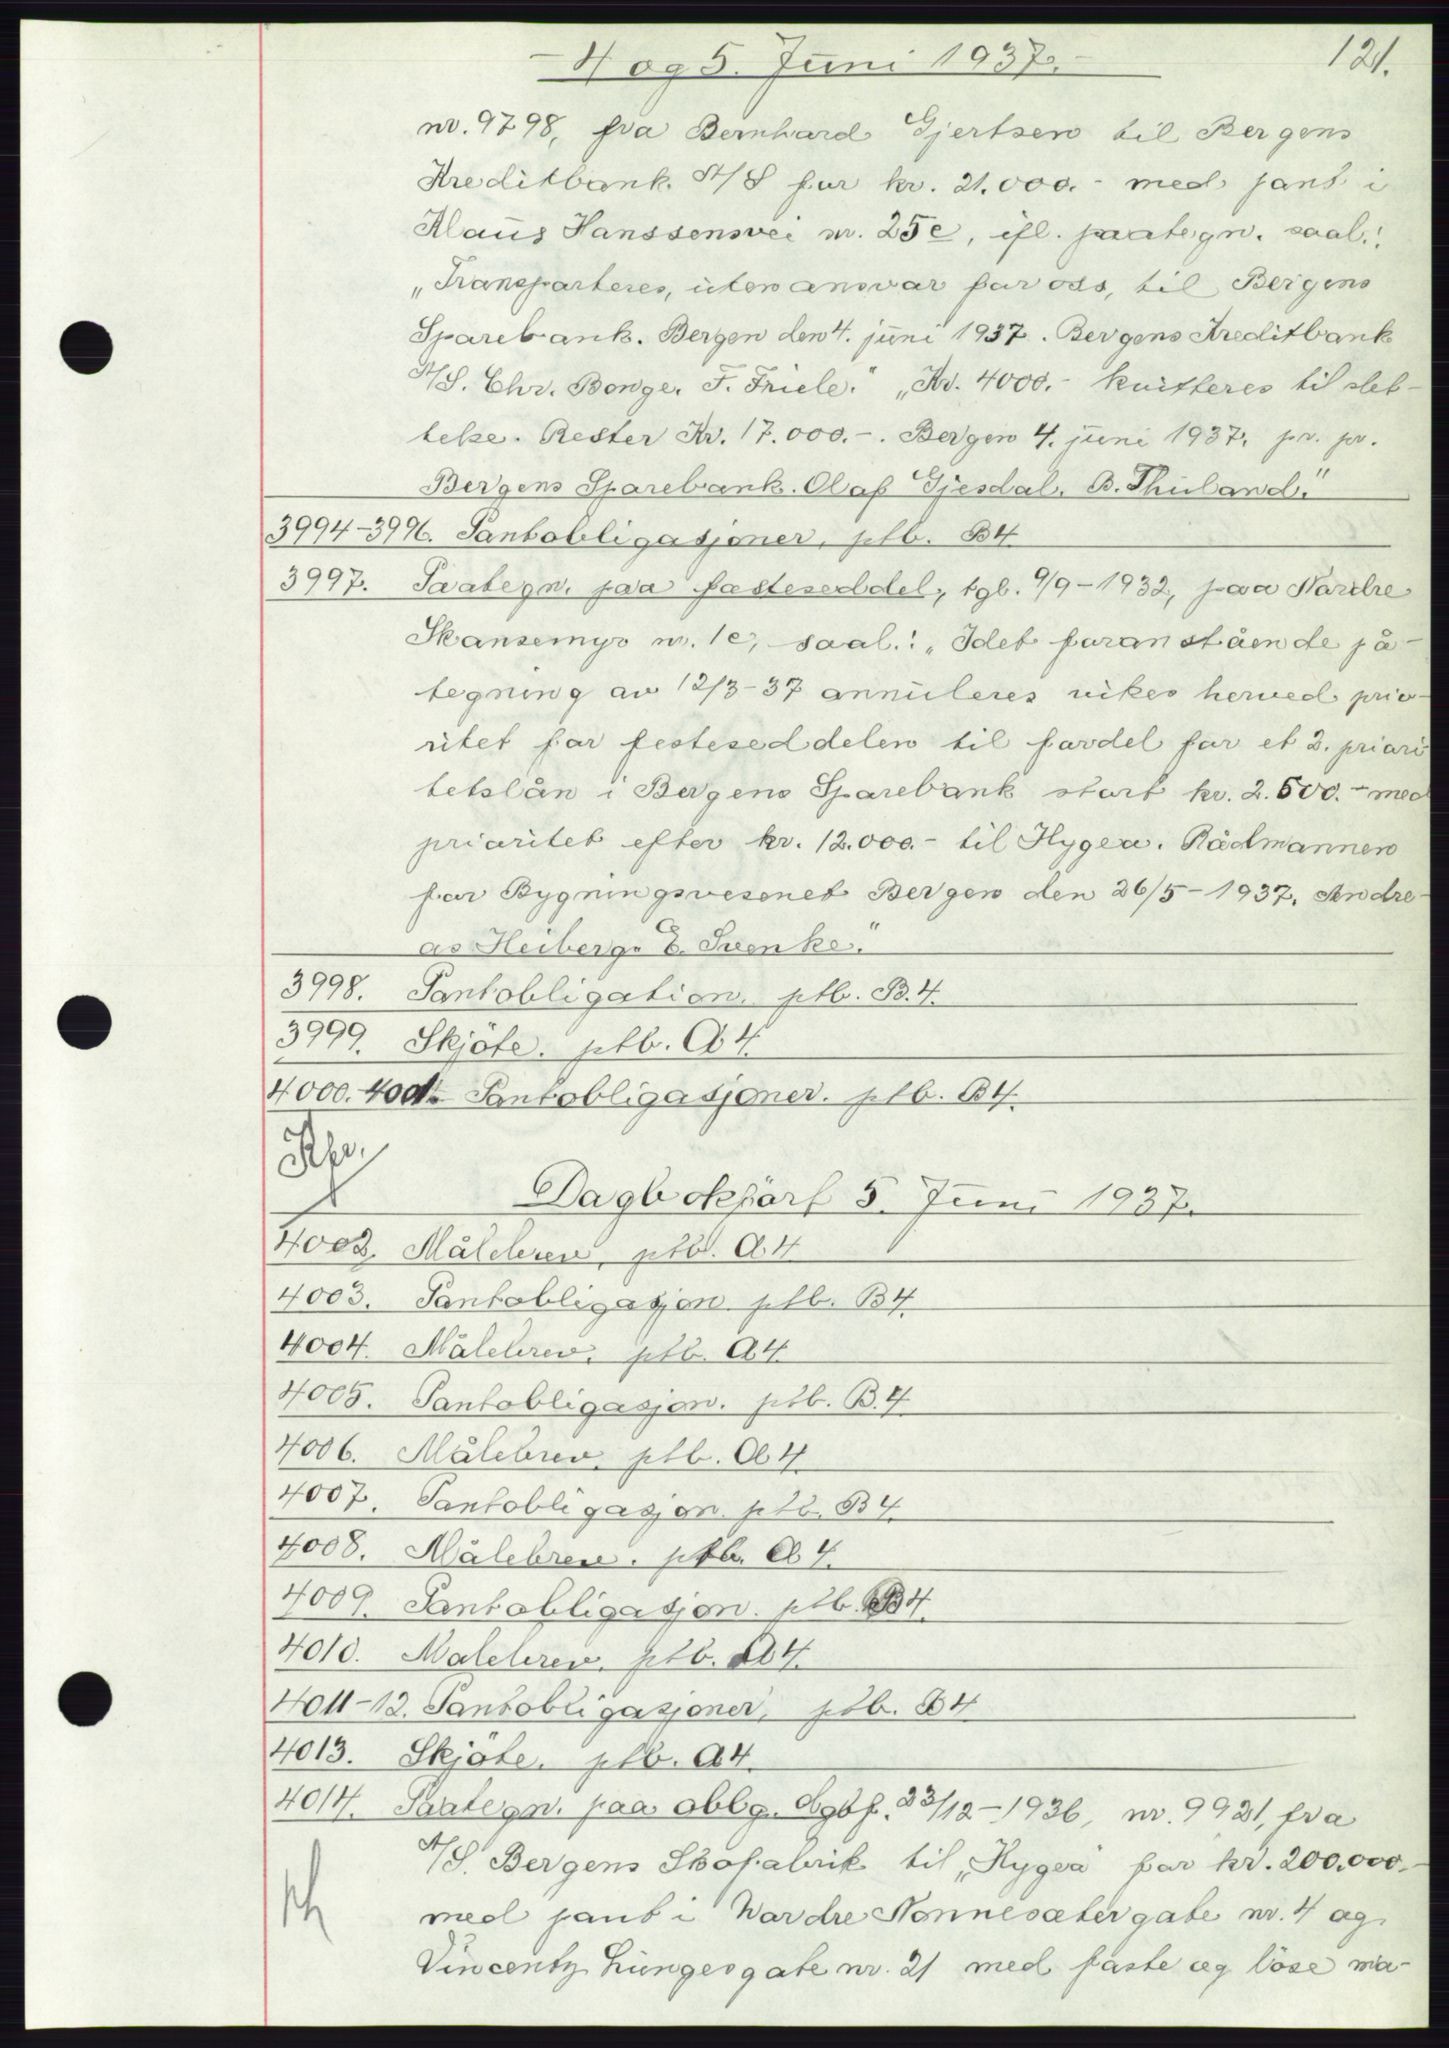 - 4 og 5. Juni 1937. -
121.
nr. 9798, fra Bernhard Gjertsen til Bergens
Kreditbank A/S for kr. 21.000.- med pant i
Klaus Hanssensvei nr. 25e, ifl. paategn. saal.:
„Transporteres, uten ansvar for oss, til Bergens
Sparebank. Bergen den 4. juni 1937. Bergens Kreditbank
A/S. Chr. Bonge. F. Friele." „Kr. 4000.- kvitteres til slet-
telse. Rester Kr. 17.000.-. Bergen 4. juni 1937. pr. pr.
Bergens Sparebank. Olaf Gjesdal. B. Thuland."
3994-3996. Pantobligasjoner, ptb. B4.
3997. Paategn. paa festeseddel, tgl. 9/9-1932, paa Nordre
Skansemyr nr. 1e, saal.: „Idet foranstående på-
tegning av 12/3-37 annuleres vikes herved prio-
ritet for festeseddelen til fordel for et 2. priori
tetslån i Bergens Sparebank stort kr. 2.500.- med
prioritet efter kr. 12.000.- til Hygea. Rådmannen
for Bygningsvesenet Bergen den 26/5-1937. Andre-
as Heiberg. E. Svenke."
3998. Pantobligation. ptb. B.4.
3999. Skjöte. ptb. A4.
4000. 4001. Pantobligasjoner. ptb. B4.
Dagbokført 5. Juni 1937.
4002. Målebrev, ptb. A4
4003. Pantobligasjon. ptb. B4.
4004. Målebrev. ptb. A4.
4005. Pantobligasjon. ptb. B.4.
4006. Målebrev. ptb. A4.
4007. Pantobligasjon. ptb. B4.
4008. Målebrev. ptb. A4.
4009. Pantobligasjon. ptb. B4.
4010. Målebrev. ptb. A4.
4011-12. Pantobligasjoner, ptb. B4
4013. Skjöte. ptb. A4.
4014. Paategn. paa oblg. dgbf. 23/12-1936, nr. 9921, fra
A/S. Bergens Skofabrik til „Hygea" for kr. 200.000.-
med pant i Nordre Nonnesætergate nr. 4 og
Vincentz Lungesgate nr. 21 med faste og löse ma-